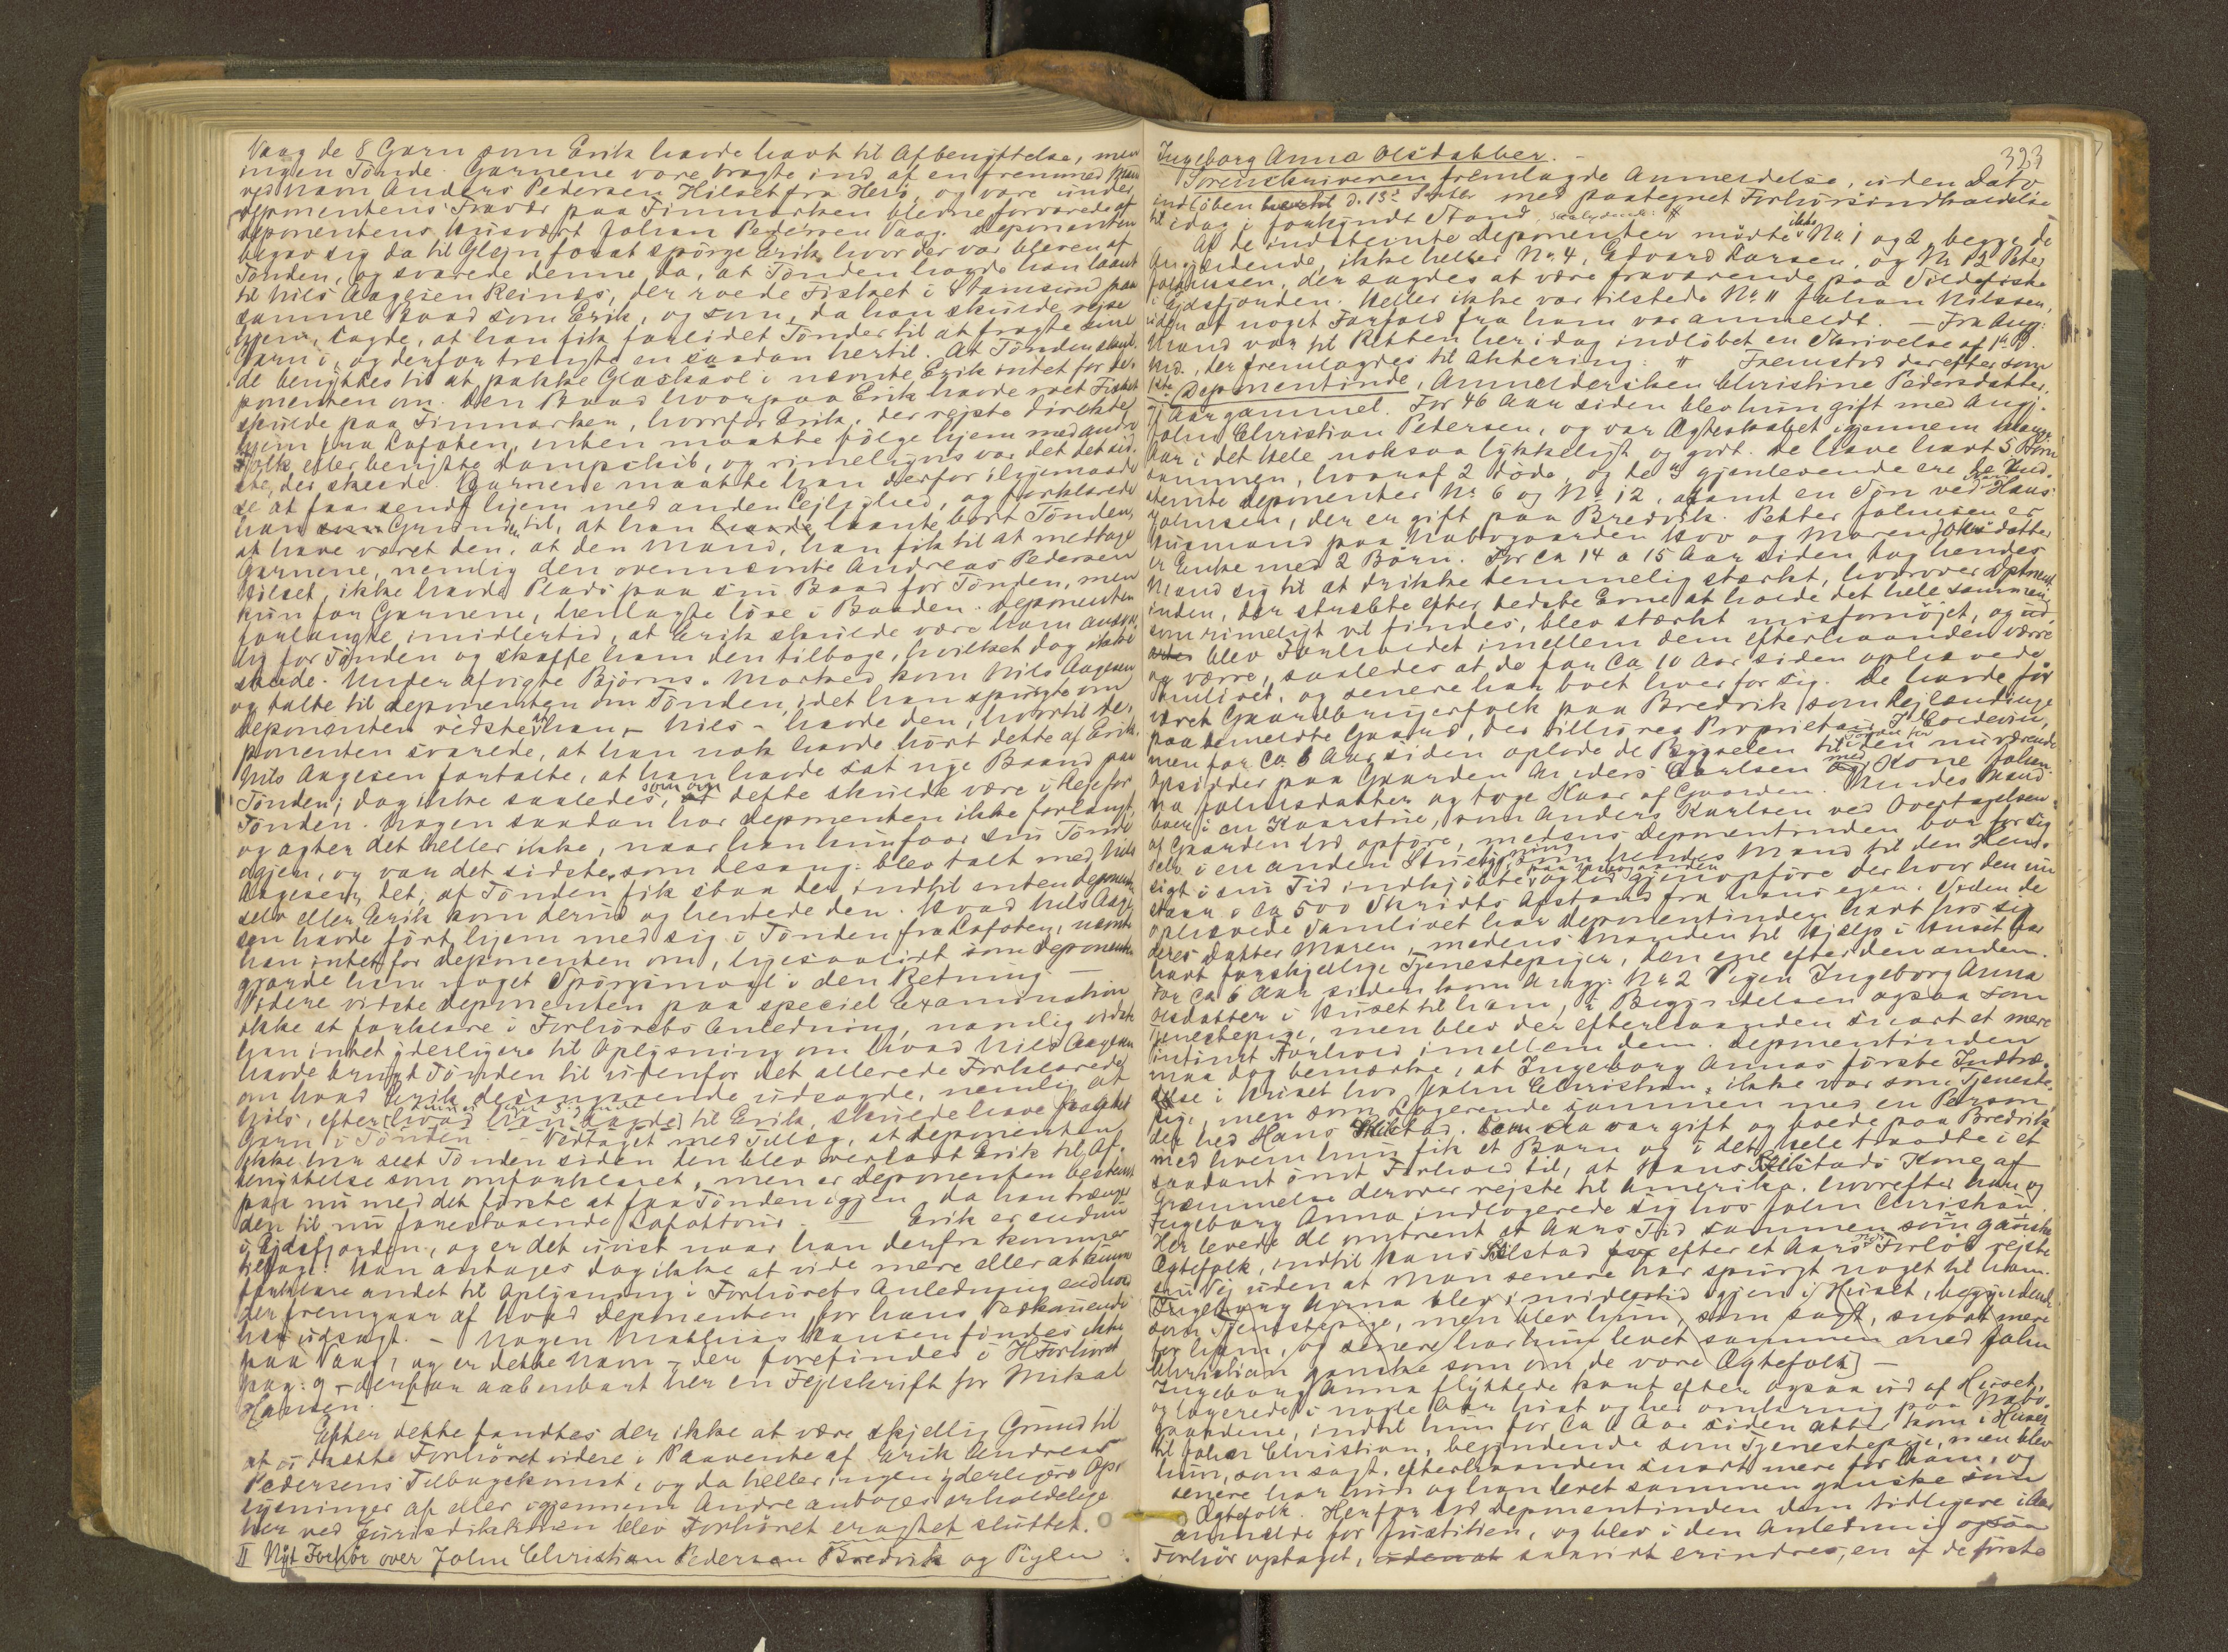 Vaag de 8 Garn som Erik havde havt til Afbenyttelse, men
ingen Tønde. Garnene vare bragte ind af en fremmed Mand
ved Navn Anders Pedersen Hilset fra Herø, og vare under
deponentens Fravær paa Finmarken blevne forvarede af
deponentens Husvært Johan Pedersen Vaag. Deponenten
begav sig da til Glein forat spørge Erik, hvor der var bleven af
Tønden, og svarede denne da, at Tønden havde han laant
til Nils Aagesen Reines, der roede Fisket i Stamsund paa
samme Baad som Erik, og som, da han skulde rejse
hjem, sagde, at han fik forlidet Tønder til at fragte sine
Garn i, og derfor trængte en saadan hertil. At Tønden skul-
de benyttes til at pakke Glaskavl i nævnte Erik intet for de-
ponenten om. Den Baad hvorpaa Erik havde roet Fisket
skulde paa Finmarken, hvorfor Erik, der rejste direkte
hjem fra Lofoten, enten maatte følge hjem med andre
Folk eller benytte Dampskib, og rimeligvis var det det sid-
ste, der skeede. Garnene maatte han derfor iligemaade
se at faa sendt hjem med anden Lejlighed, og forklarede
han Grunden til, at han laante bort Tønden,
at have været den, at den Mand, han fik til at medtage
Garnene, nemlig den ovennævnte Andreas Pedersen
Hilset, ikke havde Plads paa sin Baad for Tønden, men
kun for Garnene, henlagte løse i Baaden. Deponenten
forlangte imidlertid, at Erik skulde være ham ansvar-
lig for Tønden og skaffe ham den tilbage, hvilket dog ikke
skede. Under afvigte Bjørns-Marked kom Nils Aagesen
og talte til deponenten om Tønden, idet han spurgte om
deponenten vidste at han - Nils - havde den, hvortil de-
ponenten svarede, at han nok havde hørt dette af Erik.
Nils Aagesen fortalte, at han havde sat nye Baand paa
Tønden; dog ikke saaledes, som om dette skulde være i Leje for
Tønden. Nogen saadan har deponenten ikke forlangt,
og agter det heller ikke, naar han kun faar sin Tønde
igjen, og var det sidste, som desang: blev talt med Nils
Aagesen, det, at Tønden fik staa der, indtil enten deponenten
selv eller Erik kom derud og hentede den. Hvad Nils Aage-
sen havde ført hjem med sig i Tønden fra Lofoten, nævnte
han intet for deponenten om, ligesaalidt som deponenten
gjorde ham noget Spørgsmaal i den Retning. —
Videre vidste deponenten paa speciel Examination
ikke at forklare i Forhørets Anledning, navnlig vidste
han intet yderligere til Oplysning om hvad Nils Aagesen
havde brugt Tønden til udenfor det allerede Forklarede
om hvad Erik desangaaende udsagde, nemlig at
Nils, efter [hvad han sagde] til Erik, skulde have fragtet
Garn i Tønden. - Vedtaget med Tillæg, at deponenten
ikke har seet Tønden siden den blev overladt Erik til Af-
benyttelse som omforklaret, men er deponenten bestemt
paa nu med det første at faa Tønden igjen, da han trænger
den til nu forestaaende Lofottour. — Erik er endnu
i Eidsfjorden, og er det uvist naar han derfra kommer
tilbage. Han antages dog ikke at vide mere eller at kunne
forklare andet til Oplysning i Forhørets Anledning end hvad
der fremgaar af hvad deponenten for hans Vedkommende
har udsagt. - Nogen Mathias Hansen findes ikke
paa Vaag, og er dette Navn - der forefindes i Forhøret
pag: 9 - derfor aabenbart her en Fejlskrift for Mikal
Hansen.
Efter dette fandtes der ikke at være skjellig Grund til
at udsætte Forhøret videre i Paavente af Erik Andreas
Pedersens Tilbagekomst, og da heller ingen yderligere Op-
lysninger af eller igjennem Andre antages erholdelige
her ved Jurisdiktionen blev Forhøret eragtet sluttet.
II Nyt Forhør over John Christian Pedersen Bredvik og Pigen
323
Ingeborg Anna Olsdatter. -
Sorenskriveren fremlagde Anmeldelse, uden Dato
indløben d. 13de Septbr med paategnet Forhørsindkaldelse
til idag i forkyndt Stand, saalydende: #
Af de indstevnte deponenter mødte ikke No 1 og 2, begge de
Angjeldende, ikke heller No 4, Edvard Larsen, og No 12 Peter
Johnsen, der sagdes at være fraværende paa Sildefiske
i Eidsfjorden. Heller ikke var tilstede No 11 Johan Nilssen,
uden at noget Forfald fra ham var anmeldt. — Fra Ang:
Mand var til Retten her idag indløbet en Skrivelse af 1ste d.
Md., der fremlagdes til Aktering. # Fremstod derefter som
1ste Deponentinde, Anmeldersken Christine Pedersdatter,
Aar gammel. For 46 Aar siden blev hun gift med Ang:
John Christian Petersen, og var Ægteskabet igjennem mange
Aar i det Hele noksaa lykkeligt og godt. De have havt 5 Børn
sammen, hvoraf 2 døde, og de 3 gjenlevende ere de Ind-
stevnte deponenter No 6 og No 12, samt en Søn ved Navn Hans
Johnsen, der er gift paa Bredvik. Petter Johnsen er
Husmand paa Nabogaarden Hov og Maren Johnsdatter
er Enke med 2 Børn. For ca 14 a 15 Aar siden tog hendes
Mand sig til at drikke temmelig stærkt, hvorover deponent-
inden, der stræbte efter bedste Evne at holde det hele sammen,
som rimeligt vil findes, blev stærkt misfornøjet, og
blev Forholdet imellem dem efterhaanden værre
og værre, saaledes at de for ca 10 Aar siden ophævede
Samlivet, og senere har boet hver for sig. De havde før
været Gaardbrugerfolk paa Bredvik som Lejlændinge
paa bemeldte Gaard, der tilhører Proprietair J. Coldevin,
men for ca 6 Aar siden oplode de Bygselen til den nuværende
Opsidder paa Gaarden Anders Karlsen med Kone Johan-
na Johnsdatter og toge Kaar af Gaarden. Hendes Mand
boer i en Kaarstue, som Anders Karlsen ved Overtagelsen
af Gaarden lod opføre, medens deponentinden bor for sig
selv i en anden Stuebygning som hendes Mand til den Hen-
sigt i sin Tid indkjøbte paa Nabogaarden og lod gjenopføre der hvor den nu
staar i ca 500 Skridts Afstand fra hans egen. Siden de
ophævede Samlivet har deponentinden havt hos sig
deres Datter Maren, medens Manden til Hjælp i Huset har
havt forskjellige Tjenestepiger, den ene efter den anden.
For ca 6 Aar siden kom Ang: No 2 Pigen Ingeborg Anna
Olsdatter i Huset til ham, i Begyndelsen ogsaa som
Tjenestepige, men blev der efterhaanden snart et mere
intimt Forhold imellem dem. Deponentinden
maa dog bemærke, at Ingeborg Annas første Indtræ-
delse i Huset hos John Christian, ikke var som Tjeneste-
pige, men som Logerende sammen med en Person,
der hed Hans Silstad. Denne var gift og boede paa Bredvik
med hvem hun fik et Barn og i det hele traadte i et
saadant ømt Forhold til, at Hans Silstads Kone af
Græmmelse derover rejste til Amerika, hvorefter han og
Ingeborg Anna indlogerede sig hos John Christian.
Her levede de omtrent et Aars Tid sammen som ganske
Ægtefolk, indtil Hans Silstad efter et Aars Tids Forløb rejste
sin Vej uden at man senere har spurgt noget til ham.
Ingeborg Anna blev imidlertid igjen i Huset, begyndende
som Tjenestepige, men blev hun, som sagt, snart mere
for ham, og senere har hun levet sammen med John
Christian ganske som om de vare Ægtefolk] —
Ingeborg Anna flyttede kort efter ogsaa ud af Huset,
og logerede i nogle Aar hist og her omkring paa Nabo-
gaardene, indtil hun for ca 6 Aar siden atter kom i Huset
til Johan Christian, begyndende som Tjenestepige, men blev
hun, som sagt, efterhaanden snart mere for ham, og
senere har hun og han levet sammen ganske som
Ægtefolk. Herfor lod deponentinden dem tidligere
anmelde for Justitien, og blev i den Anledning ogsaa
Forhør optaget, saavidt erindres, en af de første